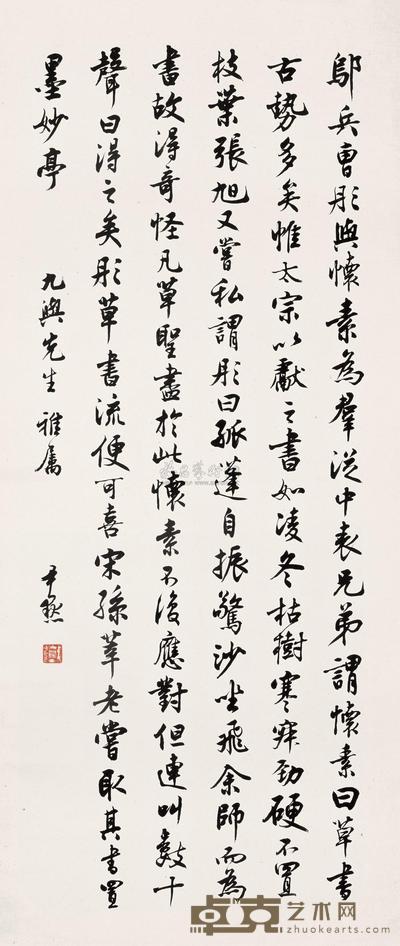 鄔兵曹彤與懷素為羣從中表兄弟謂懷素曰草書
古勢多矣惟太宗以獻之書如凌冬枯樹寒寂勁硬不置
枝葉張旭又嘗私謂彤曰孤蓬自振驚沙坐飛余師而為
書故得奇怪凡草聖盡於此懷素不復應對但連叫數十
聲曰得之矣彤草書流便可喜宋孫莘老嘗取其書置
墨妙亭
九與先生雅屬
尹默
卓克艺术网
zhuokearts.com